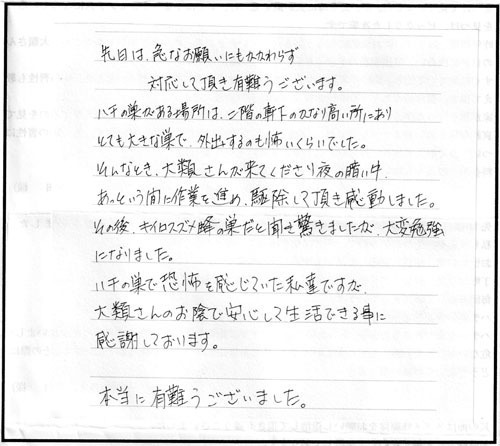 先日は、急なお願いにもかかわらず
対応して頂き有難うございます。
ハチの巣がある場所は、二階の軒下のかなり高い所にあり
とても大きな巣で、外出するのも怖いくらいでした。
そんなとき、大類さんが来てくださり夜の暗い中、
あっという間に作業を進め、駆除して頂き感動しました。
その後、キイロスズメ蜂の巣だと聞き驚きましたが、大変勉強
になりました。
ハチの巣で恐怖を感じていた私達ですが、
大類さんのお陰で安心して生活できる事に
感謝しております。
本当に有難うございました。